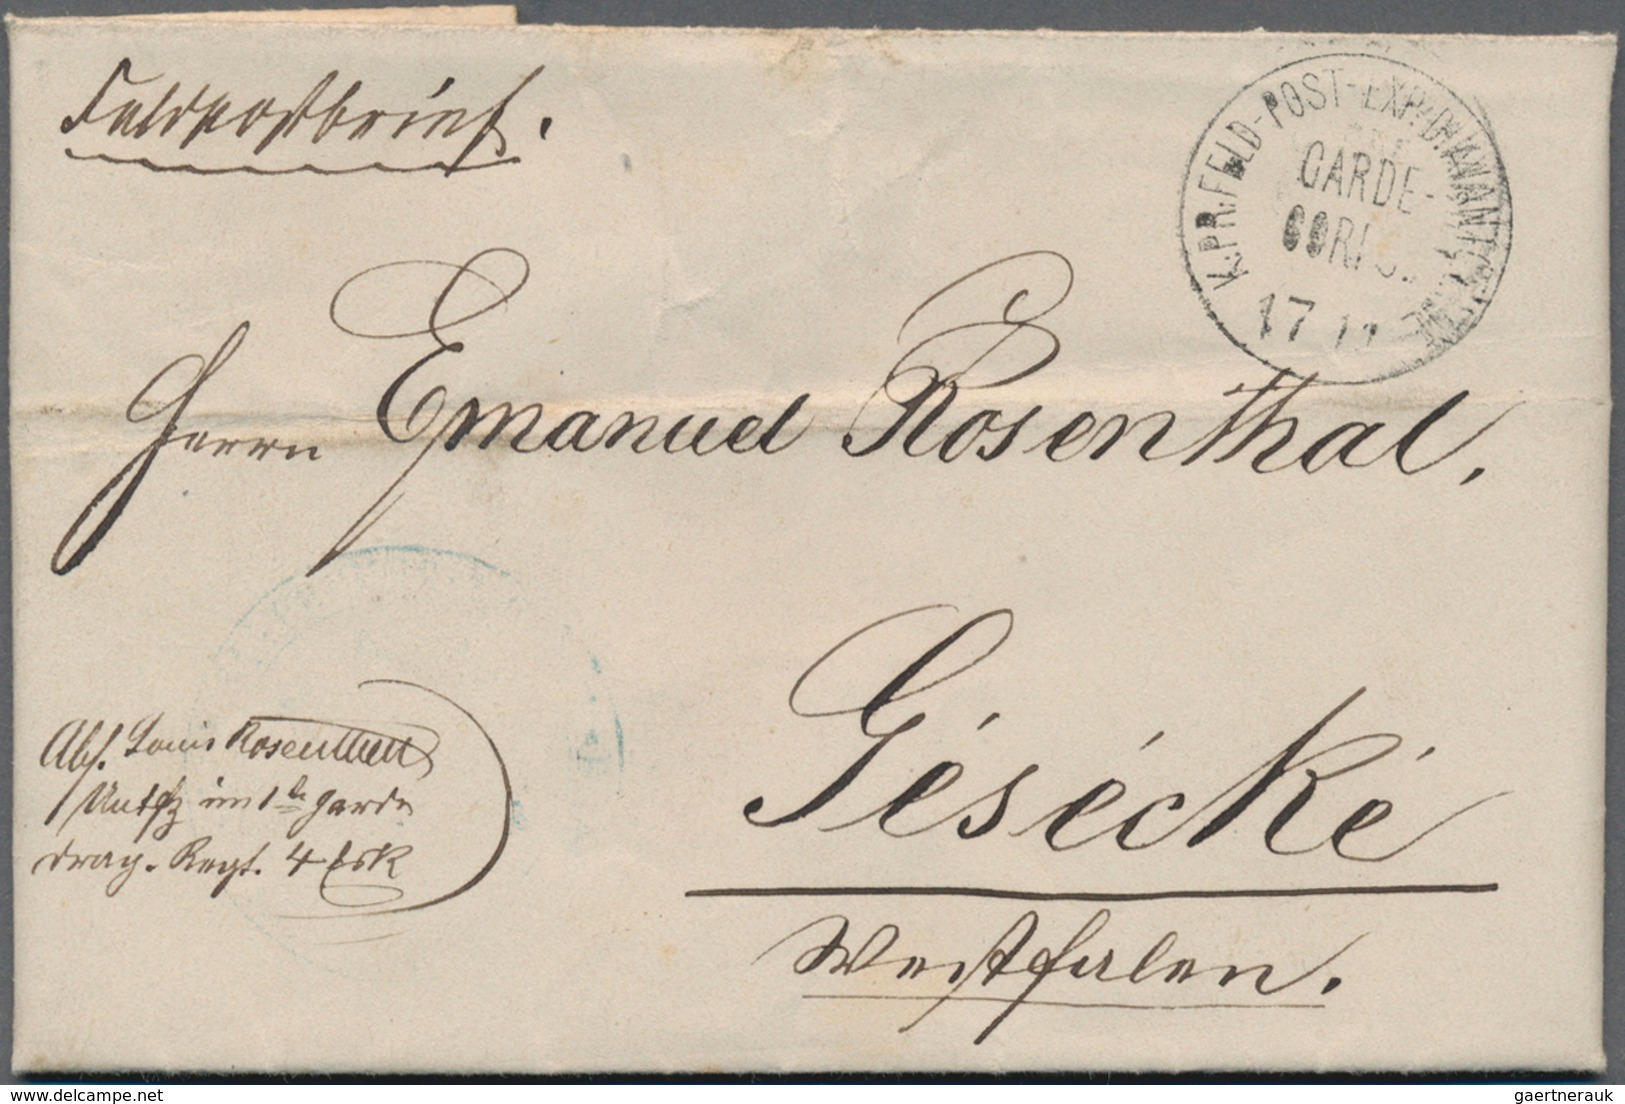 Feldpostbrief.
K. PR. FELD-POST-EXP.
GARDE-
CORPS.
17 11
Herrn Emanuel Rosenthal,
Gésécké
Westfalen.
Abs. Louis Rosenthal
Untfz im 1te Garde
Drag. Regt. 4 Esk
delcampe.net
gaertnerauk